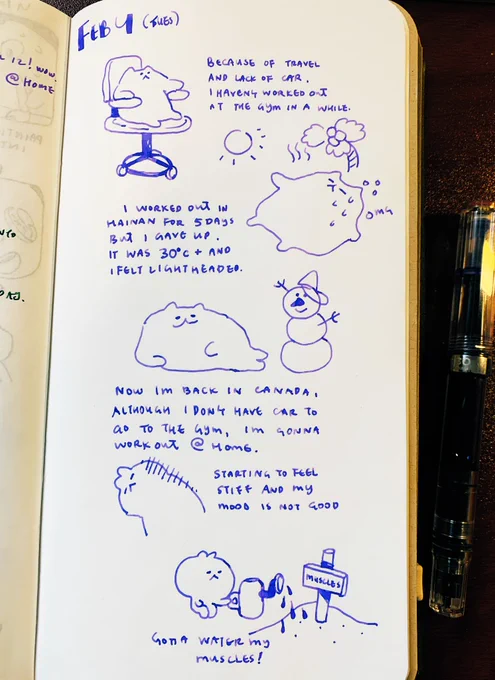 L 12! WOW.
@ HOME
FEB 4 (TUES)
BECAUSE OF TRAVEL
AND LACK OF CAR.
I HAVEN'T WORKED OUT
AT THE GYM IN A WHILE.
I WORKED OUT IN
HAINAN FOR 5 DAYS
BUT I GAVE UP.
IT WAS 30°C + AND
I FELT LIGHTHEADED.
OMG
NOW IM BACK IN CANADA,
ALTHOUGH I DON'T HAVE CAR TO
GO TO THE GYM, IM GONNA
WORK OUT @ HOME.
STARTING TO FEEL
STIFF AND MY
MOOD IS NOT GOOD
MUSCLES
GOTTA WATER MY
MUSCLES!